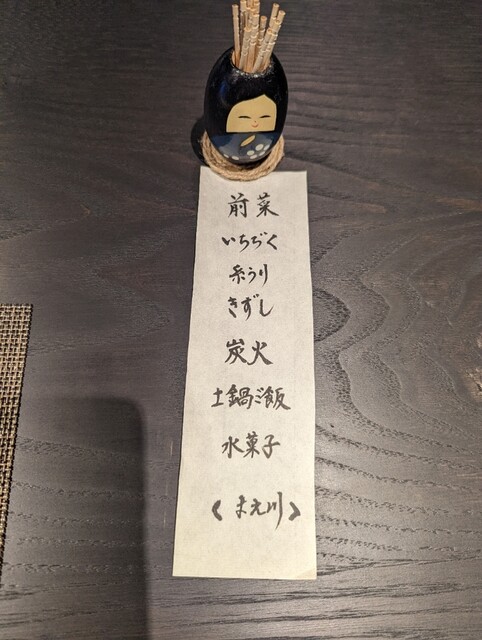 前菜
いちぢく
糸うり
きずし
炭火
土鍋ご飯
水菓子
〈まえ川〉